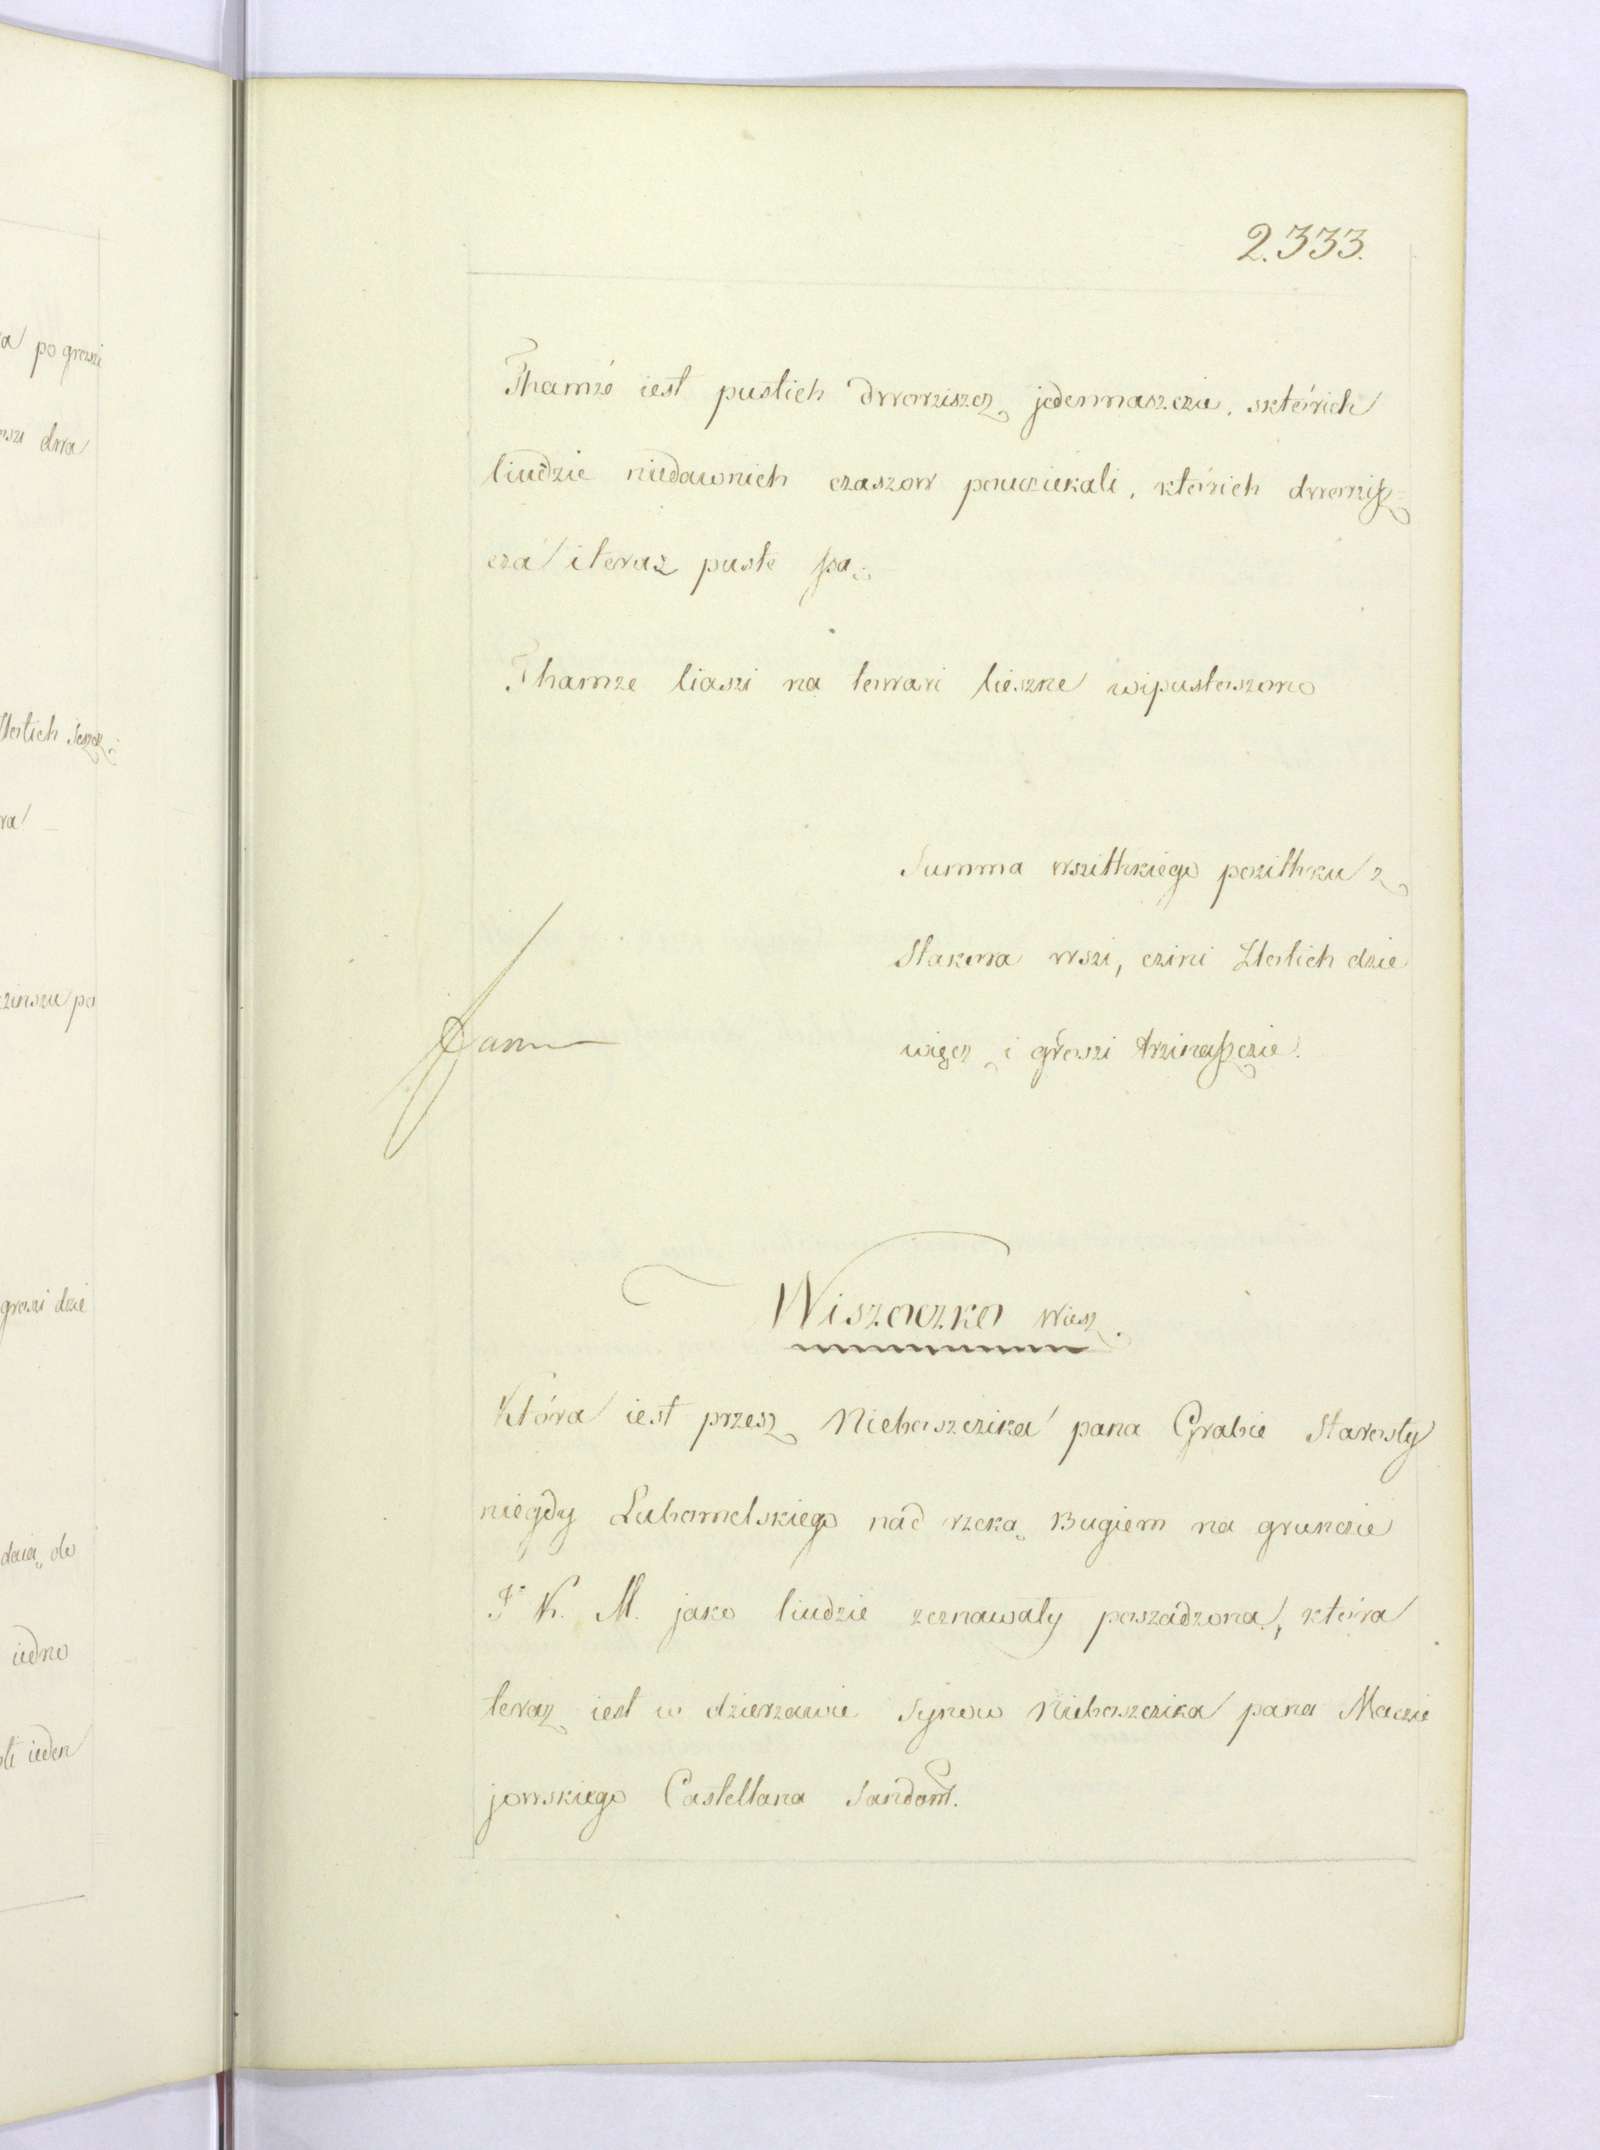 2.333.
Thamże iest pustich dworziszcz jedennaszczie, sktórich
liudzie niedawnich czaszow pouciekali, którich dworziß=
cza iteraz puste ßą.
Thamze liaszi na towari lieszne wipustoszono
Summa wszithkiego pozithku z
Stakowa wszi, czini Złotich dzie
więcz i groszi trzinaßczie.
Wiszoczko wiesz.
Która iest przesz Nieboszczika pana Grabie Starosty
niegdy Lubomelskiego nád rzeką Bugiem na grunczie
J. K. M. jako liudzie zeznawały poszádzona, która
teraz iest w dzierzawie Synow Nieboszczika pana Maczie
jowskiego Castellana Sandom.
po groszi
dwa
Złotich
zinszu po
groszi dzie
daią do
iedno
ieden